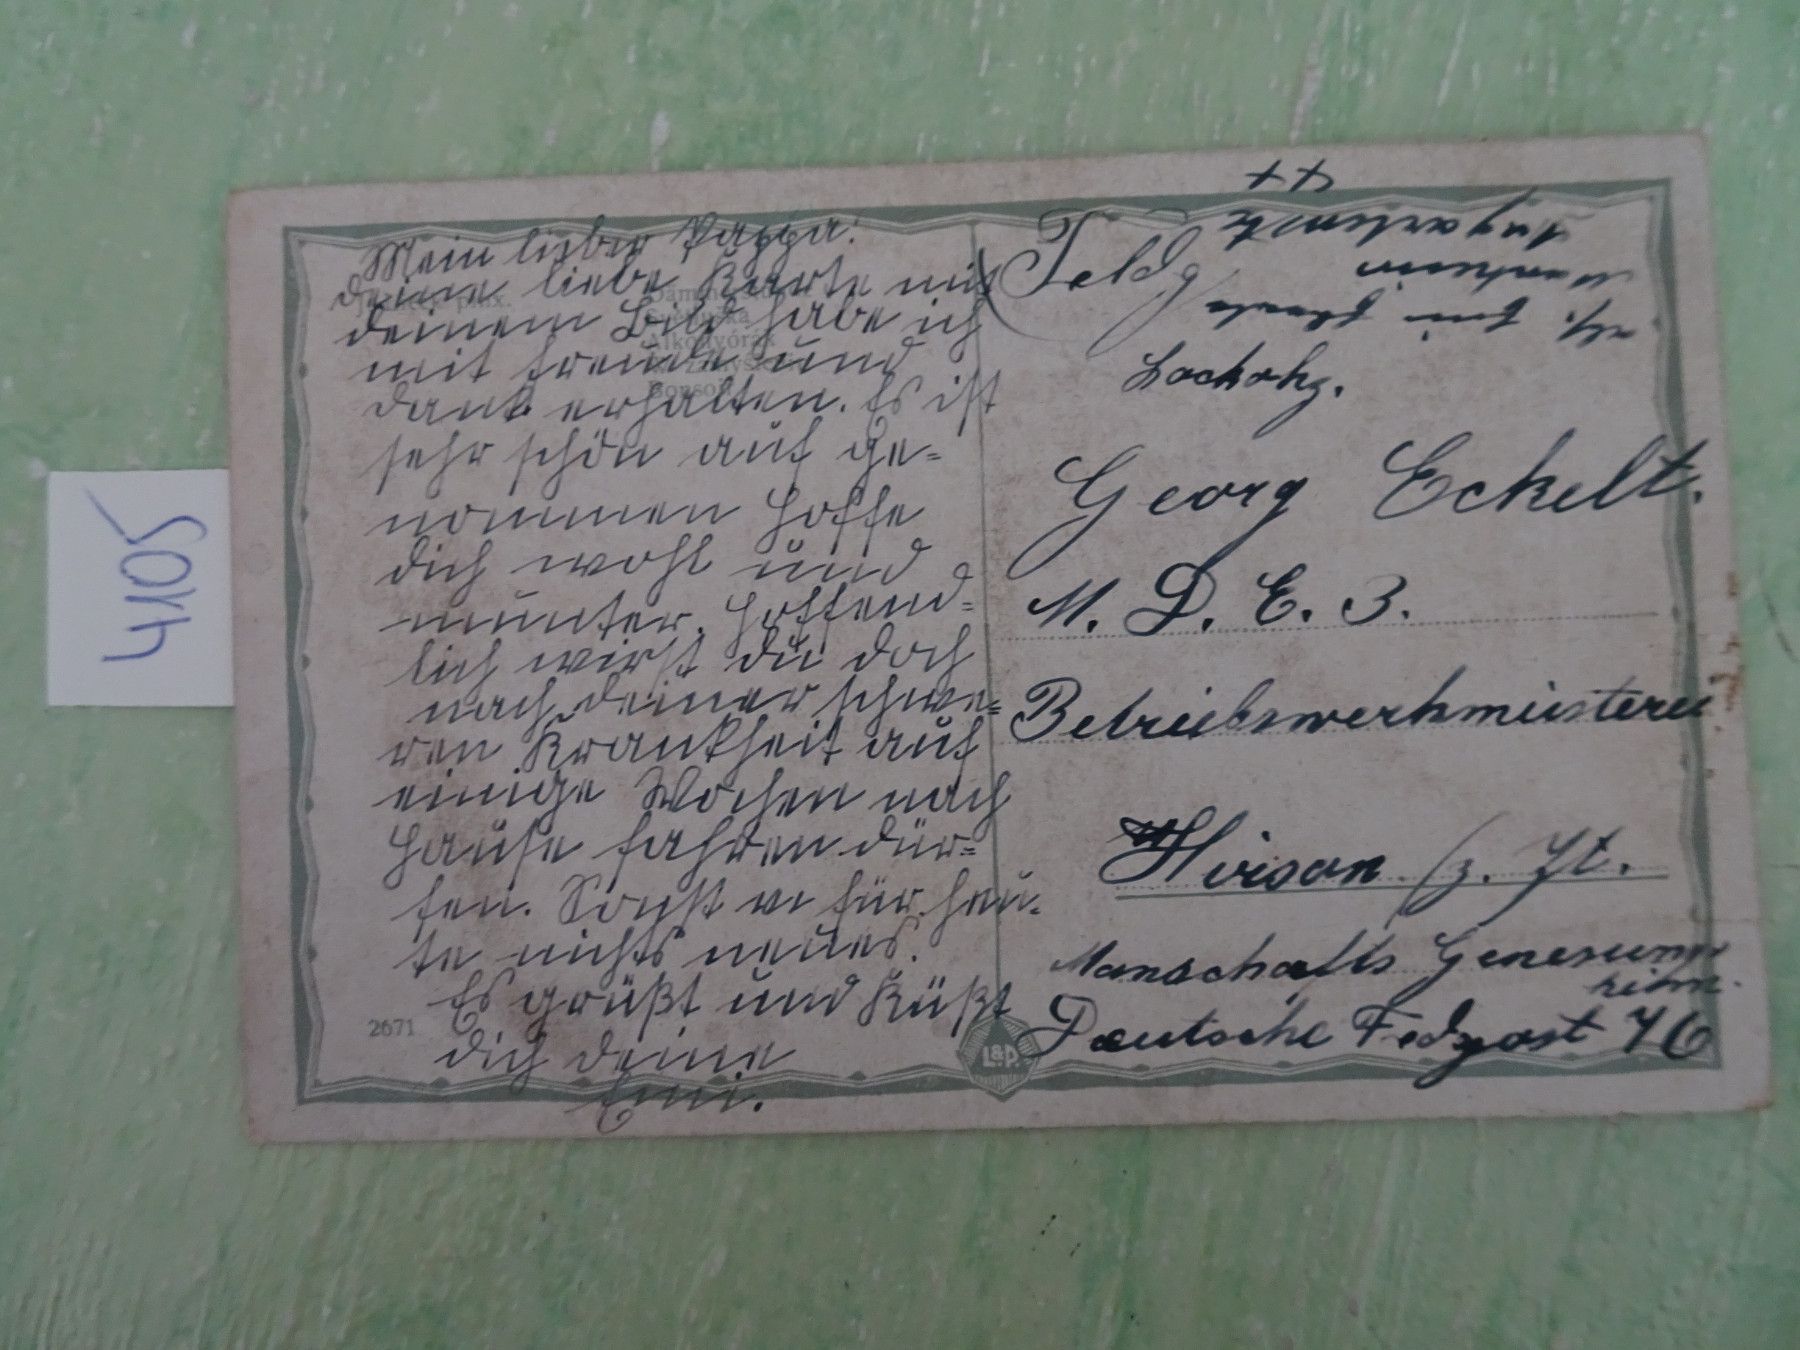 4105
Mein lieber Pappa!
deine liebe Karte mit
deinem Bild habe ich
mit Freude und
dank erhalten. Es ist
sehr schön auf ge=
nommen Hoffe
dich wohl und
munter. Hoffend=
lich wirst du doch
nach deiner schwe=
ren Krankheit auf
einige Wochen nach
Hause fahren dür=
fen. Sonst für heu-
te nichts neues.
Es grüßt und Küßt
dich deine
Emi.
2671
L&P.
Georg Eckelt.
M. D. E. 3.
Betriebswerkmeisterei
Hirson z. Zt.
Manschafts Genesungs
heim.
Deutsche Fedpost 46